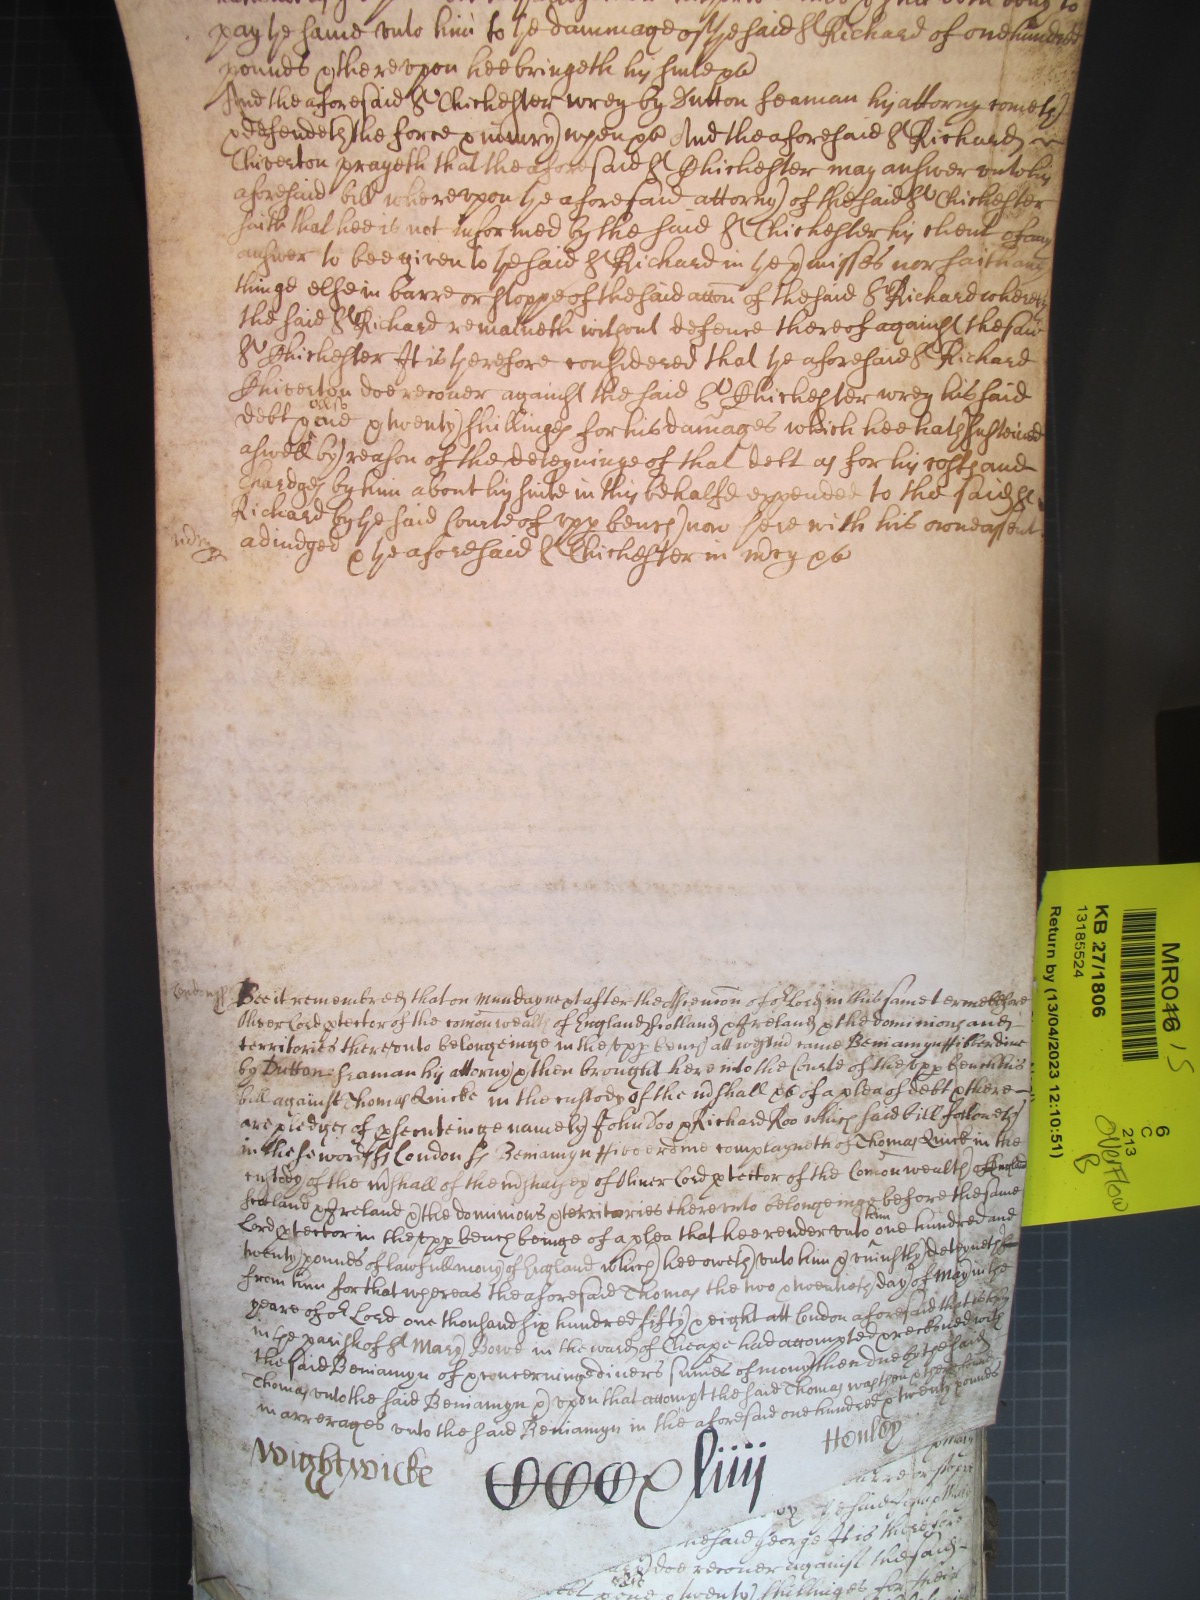 pay the same unto him to the dammage of the said Sr Richard of one hundred
pounds & thereupon hee bringeth his suite &c
And the aforesaid Sr Chichester wrey by Dutton Seaman his attorny cometh
& defendeth the force & iniury when &c And the aforesaid Sr Richard
Chiverton prayeth that the aforesaid Sr Chichester may answer unto his
aforesaid bill whereupon the aforesaid attorny of the said Sr Chichester
saith that hee is not informed by the said Sr Chichester his client of any
answer to bee given to the said Sr Richard in the pmisses nor saith any
thinge else in barre or stoppe of the said accon of the said Sr Richard whereby
the said Sr Richard remaineth without defence thereof against the said
Sr Chichester It is therefore considered that the aforesaid Sr Richard
Chiverton doe recover against the said Sr Chichester wrey his said
debt & one & twenty shillings for his damages which hee hath susteined
aswell by reason of the deteyninge of that debt as for his costs and
chardges by him about his suite in this behalfe expended to the said Sr
Richard by the said Courte of upp bench now here with his owne assent
adiudged & the aforesaid Sr Chichester in mcy &c
mcy
London ss
Bee it remembred that on munday next after the Ascencon of or Lord in this same terme before
Oliver Lord ptector of the comonwealth of England Scotland & Ireland & the dominions and
territories thereunto belonginge in the upp bench att westmd came Beniamyn Hiberdine
by Dutton Seaman his attorny & then brought here into the Courte of the upp bench his
bill against Thomas Quicke in the custody of the mshall &c of a plea of debt & there
are pledges of psecuteinge namely John Doo & Richard Roo which said bill followeth
in these words ss London ss Beniamyn Hiberdine complayneth of Thomas Quick in the
custody of the mshall of the mshalsey of Oliver Lord ptector of the Comonwealth of England
Scotland & Ireland & the dominions & territories thereunto belonginge before the same
Lord ptector in the upp bench beinge of a plea that hee render unto him one hundred and
twenty pounds of lawfull mony of England which hee oweth unto him & uniustly deteyneth
from him for that whereas the aforesaid Thomas the two & twentieth day of May in the
yeare of or Lord one thousand six hundred fifty & eight att London aforesaid that is to say
in the parish of St Mary Bowe in the ward of Cheape had accompted & reckoned with
the said Beniamyn of & concerninge divers sumes of mony then due by the said
Thomas unto the said Beniamyn & upon that accompt the said Thomas was then & there found
in arrerages unto the said Beniamyn in the aforesaid one hundred & twenty pounds
Wightwicke
CCCCxliiij
Henley
barre or stoppe
the said George It is therefore
doe recover against the said
debt & one & twenty shillinges for their
MR046 / S
KB 27/1806
13185524
Return by (13/04/2023 12:10:51)
6
C
213
OVERFLOW
B